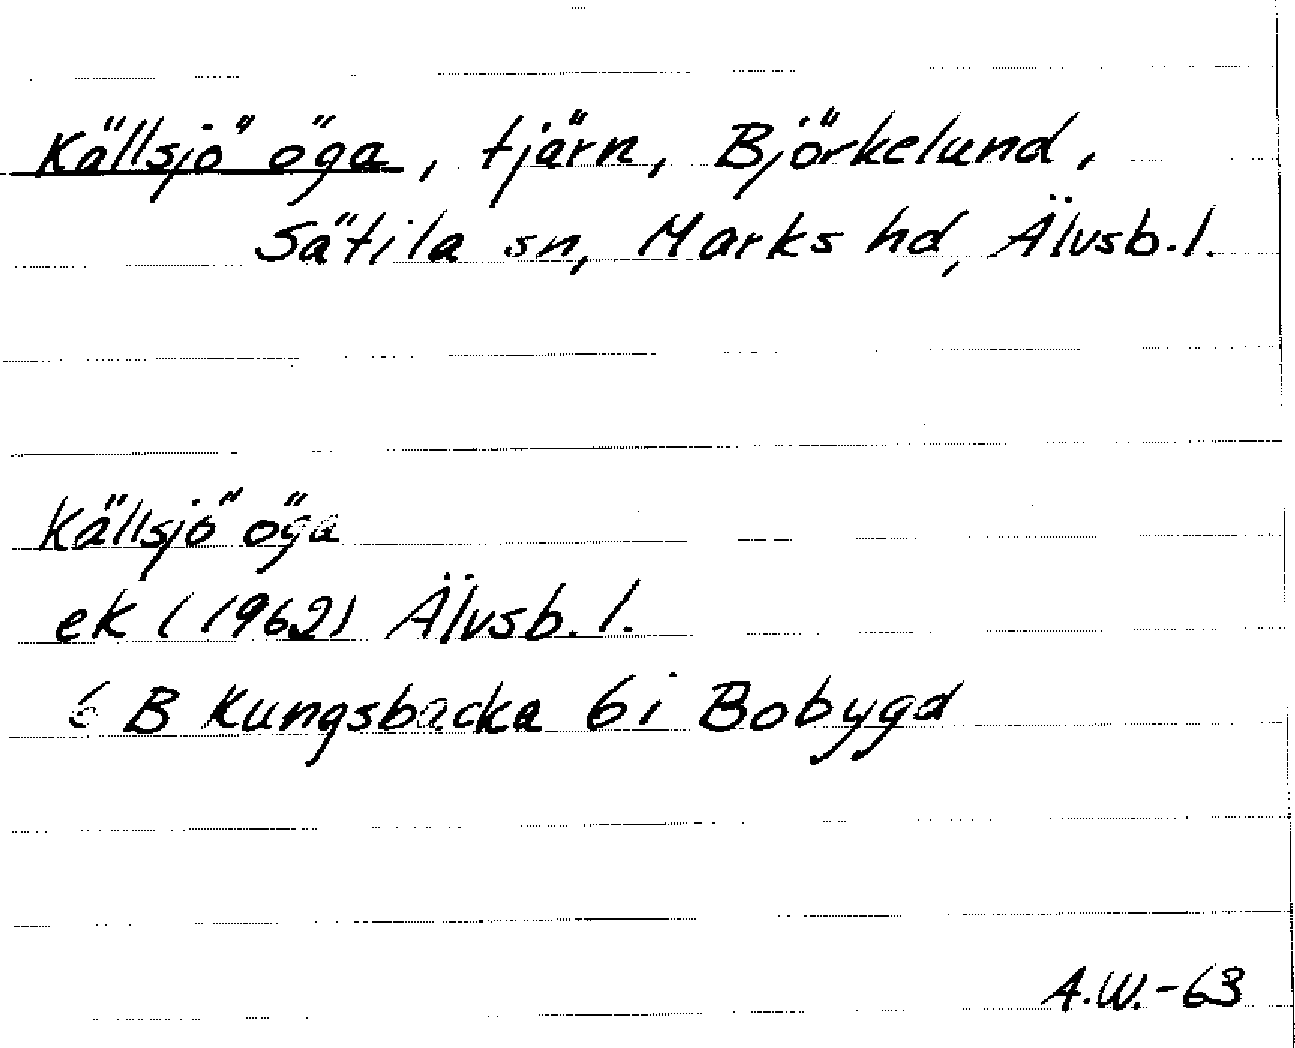 Källsjö öga, tjärn, Björkelund,
Sätila sn, Marks hd, Älvsb.l.
Källsjö öga
ek (1962) Älvsb.l.
6 B Kungsbacka 6i Bobygd
A.W.-63